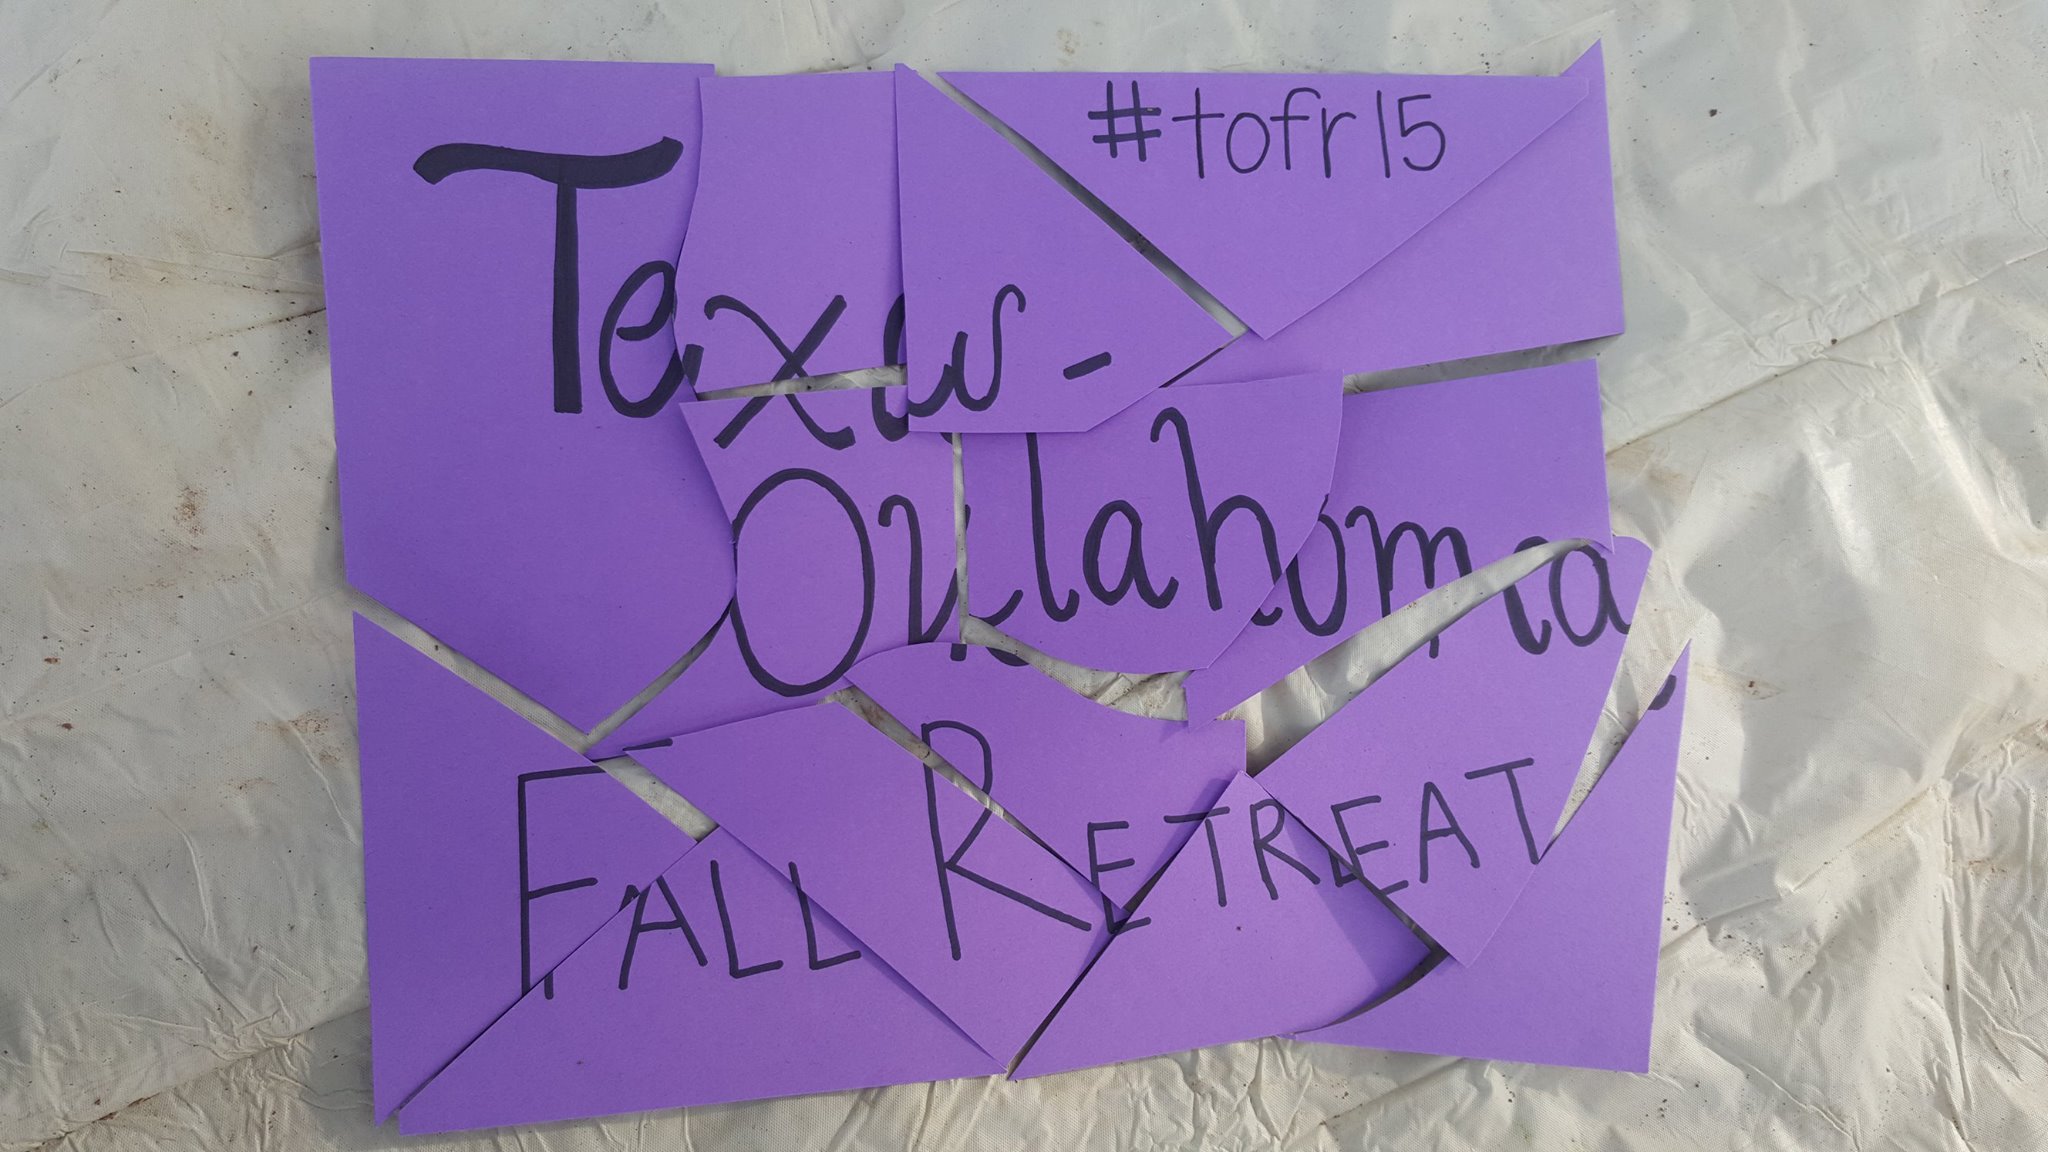 #tofr15
Texas-
Oklahoma
FALL RETREAT